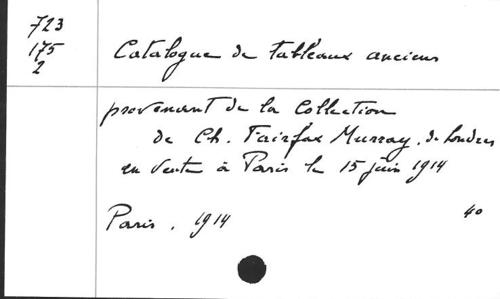 723
175
2
Catalogue de tableaux anciens
provenant de la Collection
de Ch. Fairfax Murray, de Londres
en vente à Paris le 15 juin 1914
Paris, 1914
40